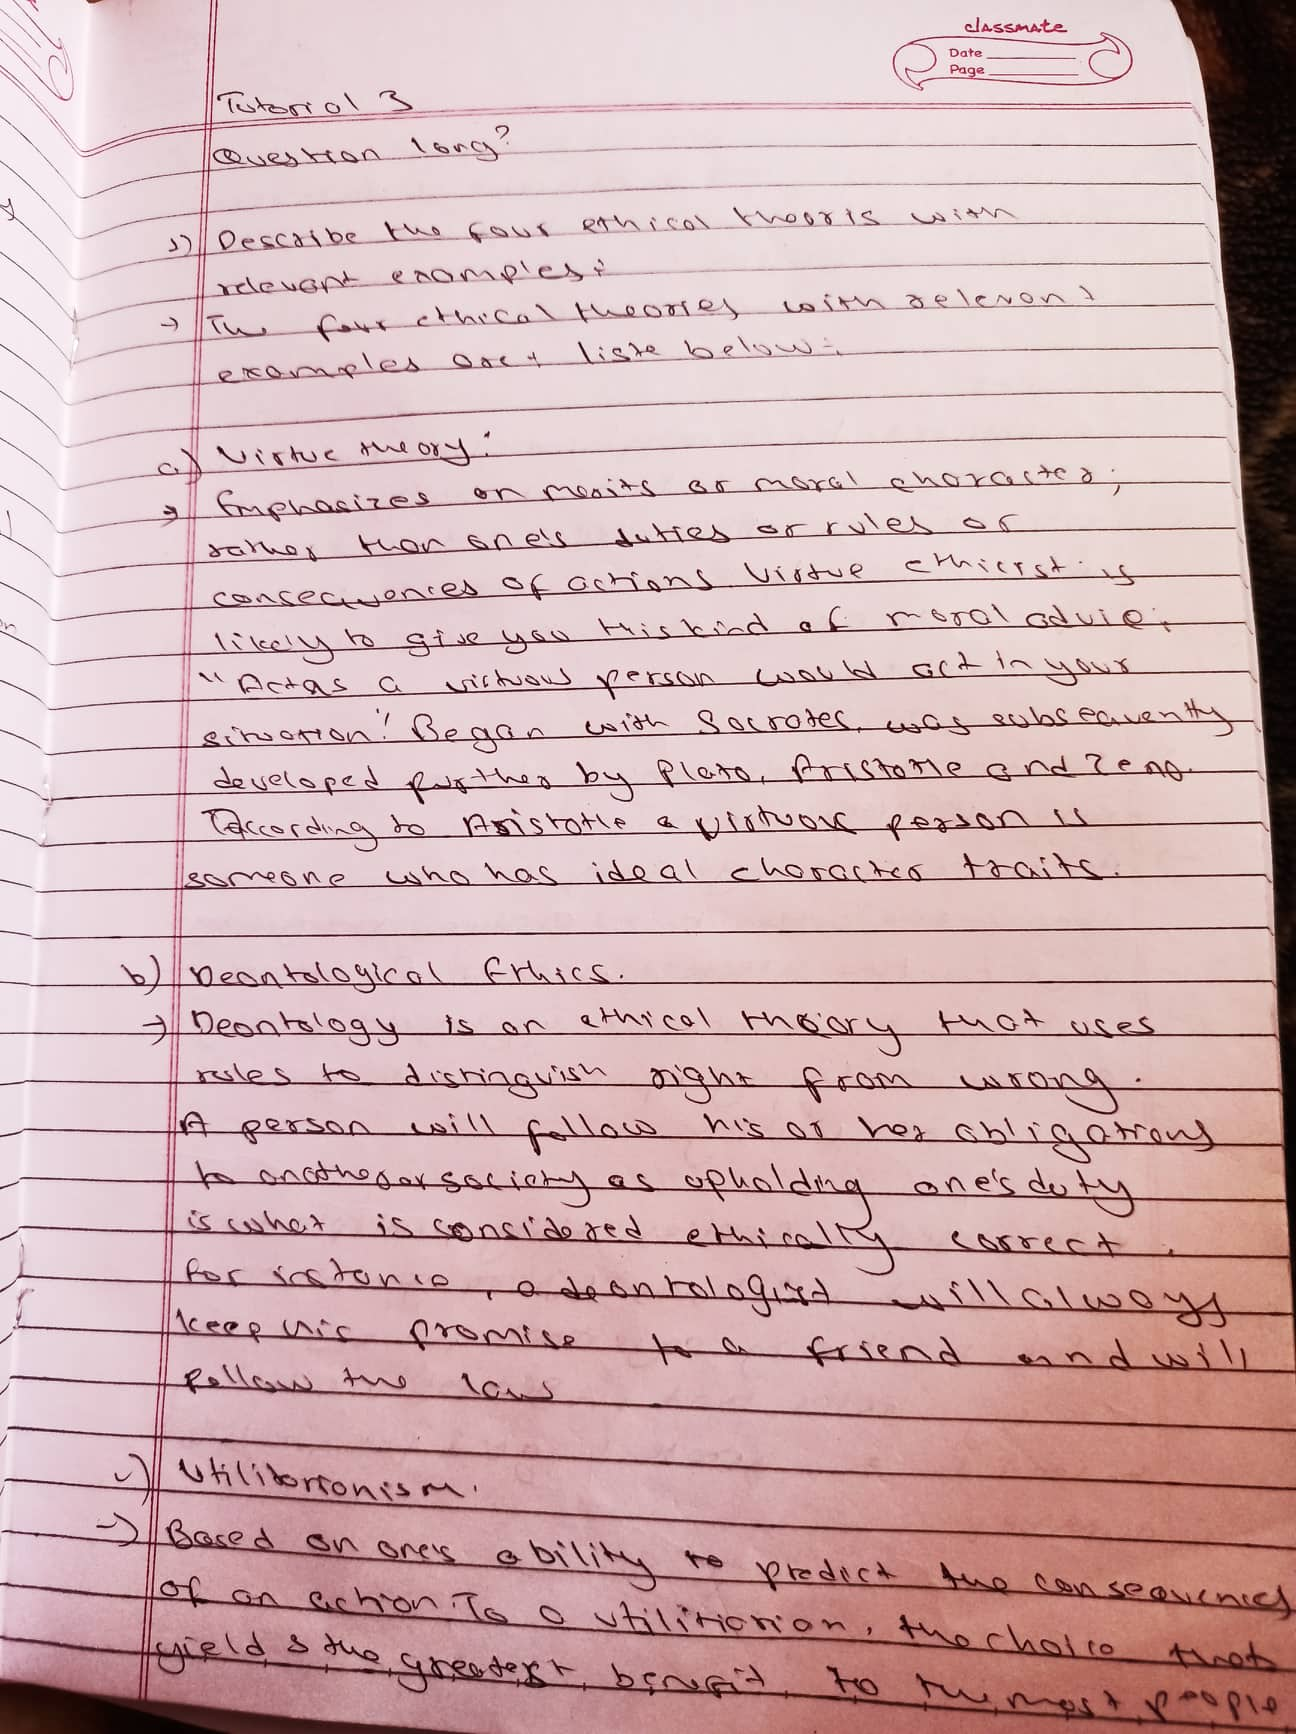 classmate
Date
Page
Tutorial 3
Question long?
1) Describe the four ethical theoris with
relevant examples:
→ The four ethical theories with relevant
examples are liste below:
a) Virtue theory:
→ Emphasizes on merits or moral character,
rather than one's duties or rules or
consequences of actions Virtue ethicist is
likely to give you this kind of moral advie:
"Act as a virtuous person would act in your
situation". Began with Socrates, was subsequently
developed further by Plato, Aristotle and Zeno.
According to Aristotle a virtuous person is
someone who has ideal character traits.
b) Deontological Ethics.
→ Deontology is an ethical theory that uses
rules to distinguish right from wrong.
A person will follow his or her obligations
to another or society as upholding one's duty
is what is considered ethically correct.
For instance, a deontologist will always
keep his promise to a friend and will
follow the law
c) Utilitarianism.
→ Based on one's ability to predict the consequences
of an action. To a utilitiarian, the choice that
yields the greatest benefit to the most people